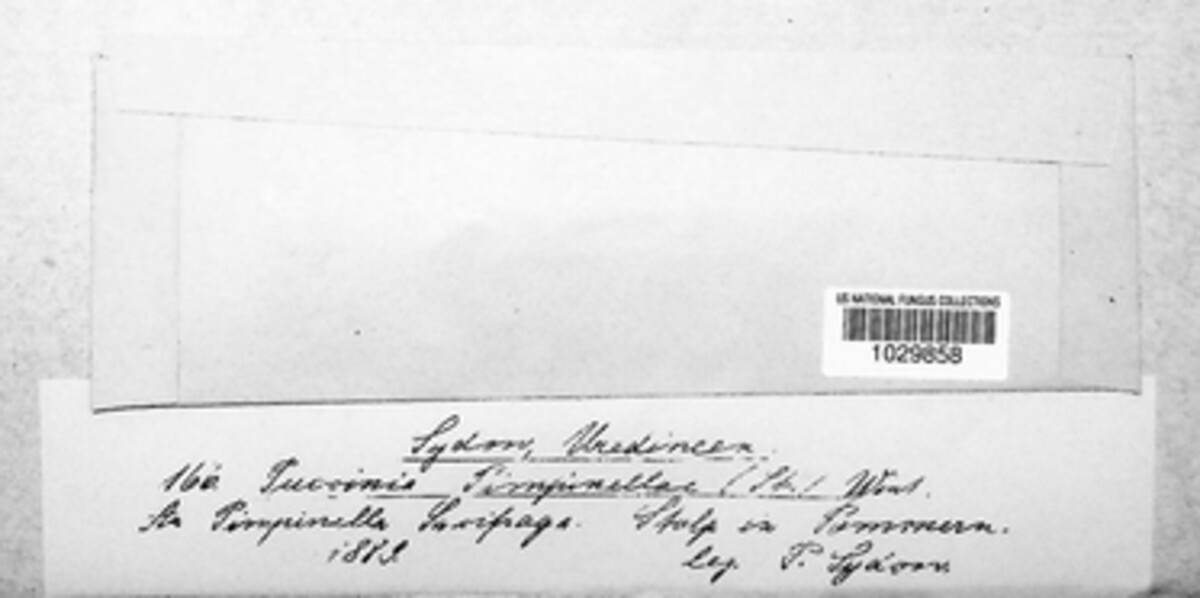 US NATIONAL FUNGUS COLLECTIONS
1029858
Sydow, Uredineen.
Puccinia Pimpinellae (Str.) Wint.
An Pimpinella Saxifraga. Stolp in Pommern.
leg. P. Sydow.